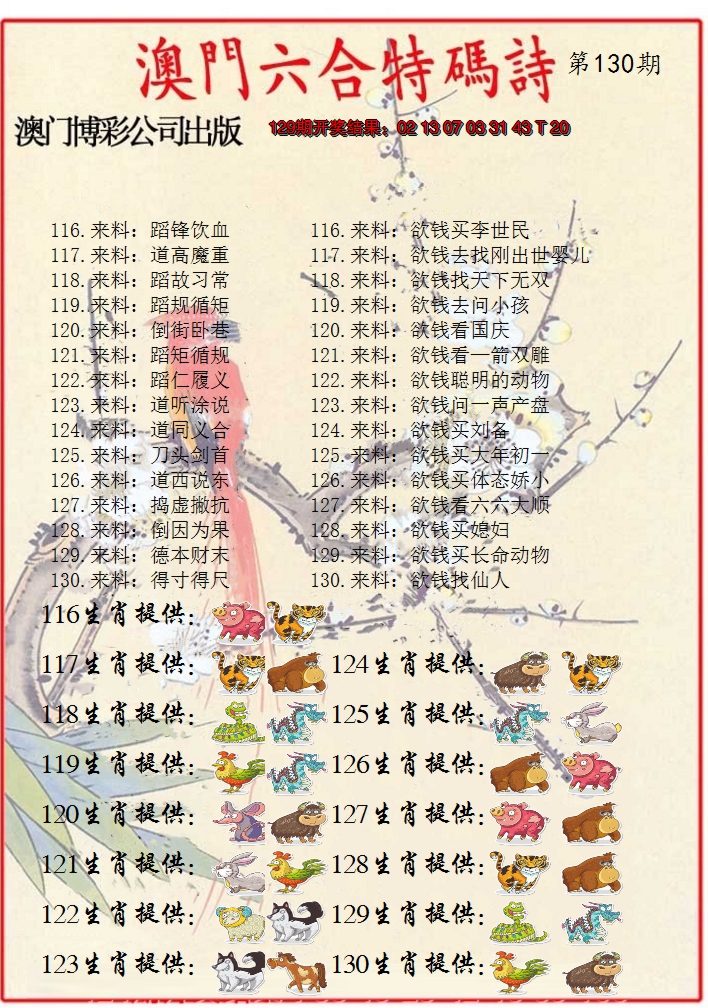 澳門六合特碼詩 第130期
澳门博彩公司出版 129期开奖结果：02 13 07 03 31 43 T 20
116.来料：蹈锋饮血 116.来料：欲钱买李世民
117.来料：道高魔重 117.来料：欲钱去找刚出世婴儿
118.来料：蹈故习常 118.来料：欲钱找天下无双
119.来料：蹈规循矩 119.来料：欲钱去问小孩
120.来料：倒街卧巷 120.来料：欲钱看国庆
121.来料：蹈矩循规 121.来料：欲钱看一箭双雕
122.来料：蹈仁履义 122.来料：欲钱聪明的动物
123.来料：道听涂说 123.来料：欲钱问一声产盘
124.来料：道同义合 124.来料：欲钱买刘备
125.来料：刀头剑首 125.来料：欲钱买大年初一
126.来料：道西说东 126.来料：欲钱买体态娇小
127.来料：捣虚撇抗 127.来料：欲钱看六六大顺
128.来料：倒因为果 128.来料：欲钱买媳妇
129.来料：德本财末 129.来料：欲钱买长命动物
130.来料：得寸得尺 130.来料：欲钱找仙人
116生肖提供：
117生肖提供： 124生肖提供：
118生肖提供： 125生肖提供：
119生肖提供： 126生肖提供：
120生肖提供： 127生肖提供：
121生肖提供： 128生肖提供：
122生肖提供： 129生肖提供：
123生肖提供： 130生肖提供：